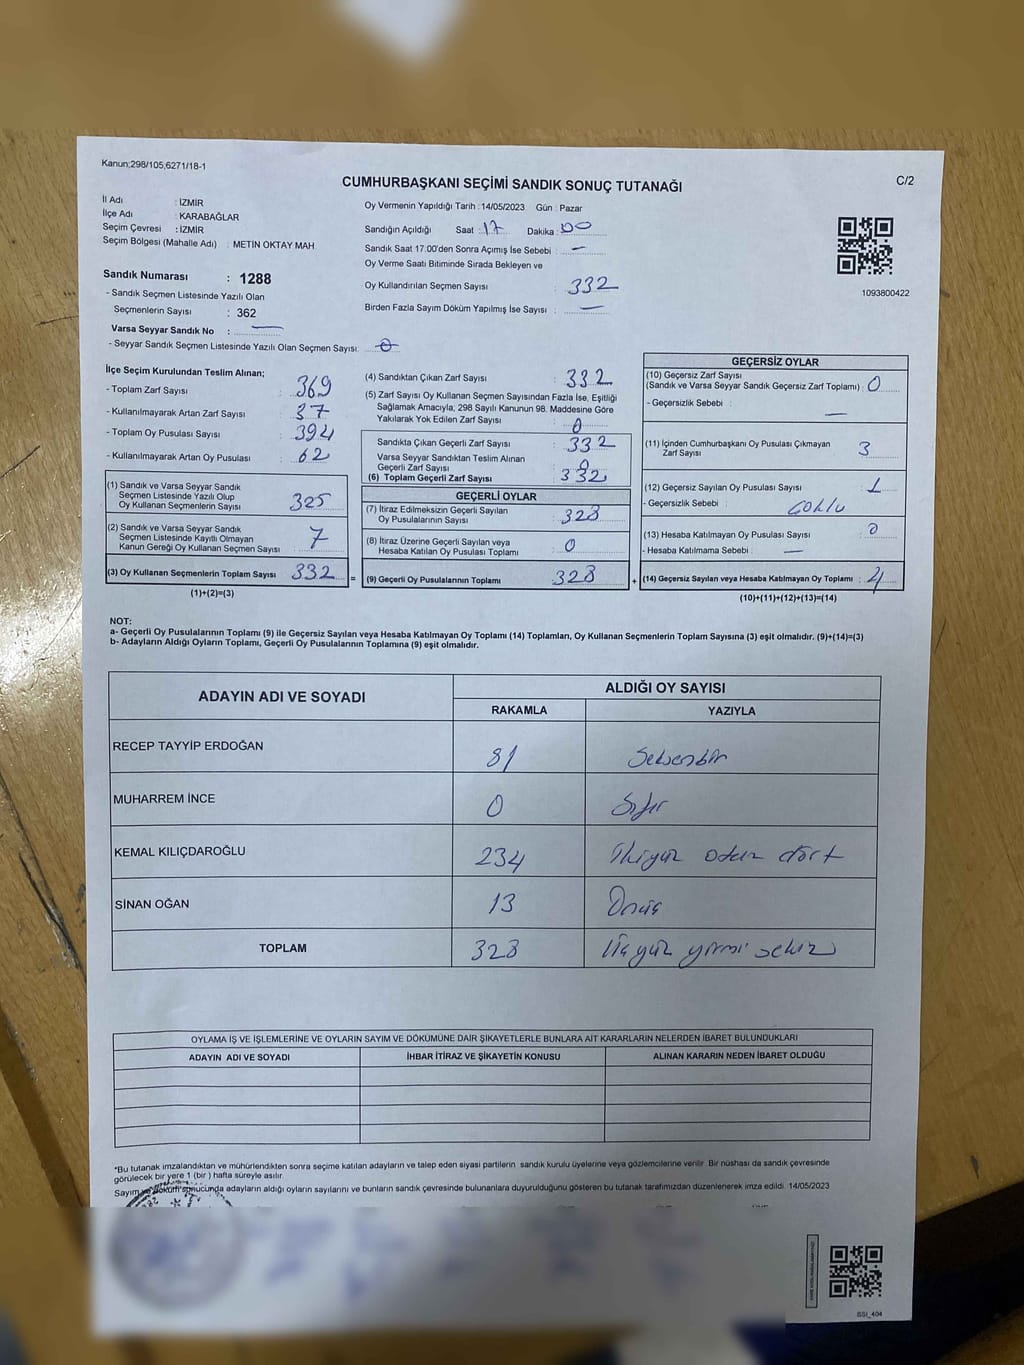 Kanun;298/105,6271/18-1
C/2
CUMHURBAŞKANI SEÇİMİ SANDIK SONUÇ TUTANAĞI
İl Adı : İZMİR
İlçe Adı : KARABAĞLAR
Seçim Çevresi : İZMİR
Seçim Bölgesi (Mahalle Adı) : METİN OKTAY MAH.
Sandık Numarası : 1288
- Sandık Seçmen Listesinde Yazılı Olan
Seçmenlerin Sayısı : 362
Varsa Seyyar Sandık No : —
- Seyyar Sandık Seçmen Listesinde Yazılı Olan Seçmen Sayısı: 0
Oy Vermenin Yapıldığı Tarih :14/05/2023 Gün : Pazar
Sandığın Açıldığı Saat : 17 Dakika : 00
Sandık Saat 17.00'den Sonra Açımış İse Sebebi : —
Oy Verme Saati Bitiminde Sırada Bekleyen ve
Oy Kullandırılan Seçmen Sayısı : 332
Birden Fazla Sayım Döküm Yapılmış İse Sayısı : —
1093800422
İlçe Seçim Kurulundan Teslim Alınan;
- Toplam Zarf Sayısı : 369
- Kullanılmayarak Artan Zarf Sayısı : 37
- Toplam Oy Pusulası Sayısı : 394
- Kullanılmayarak Artan Oy Pusulası : 62
(1) Sandık ve Varsa Seyyar Sandık
Seçmen Listesinde Yazılı Olup
Oy Kullanan Seçmenlerin Sayısı : 325
(2) Sandık ve Varsa Seyyar Sandık
Seçmen Listesinde Kayıtlı Olmayan
Kanun Gereği Oy Kullanan Seçmen Sayısı : 7
(3) Oy Kullanan Seçmenlerin Toplam Sayısı : 332 =
(1)+(2)=(3)
(4) Sandıktan Çıkan Zarf Sayısı : 332
(5) Zarf Sayısı Oy Kullanan Seçmen Sayısından Fazla İse, Eşitliği
Sağlamak Amacıyla, 298 Sayılı Kanunun 98. Maddesine Göre
Yakılarak Yok Edilen Zarf Sayısı : 0
Sandıkta Çıkan Geçerli Zarf Sayısı : 332
Varsa Seyyar Sandıktan Teslim Alınan
Geçerli Zarf Sayısı : 0
(6) Toplam Geçerli Zarf Sayısı : 332
GEÇERLİ OYLAR
(7) İtiraz Edilmeksizin Geçerli Sayılan
Oy Pusulalarının Sayısı : 328
(8) İtiraz Üzerine Geçerli Sayılan veya
Hesaba Katılan Oy Pusulası Toplamı : 0
(9) Geçerli Oy Pusulalarının Toplamı : 328 +
GEÇERSİZ OYLAR
(10) Geçersiz Zarf Sayısı
(Sandık ve Varsa Seyyar Sandık Geçersiz Zarf Toplamı) : 0
- Geçersizlik Sebebi : —
(11) İçinden Cumhurbaşkanı Oy Pusulası Çıkmayan
Zarf Sayısı : 3
(12) Geçersiz Sayılan Oy Pusulası Sayısı : 1
- Geçersizlik Sebebi :
(13) Hesaba Katılmayan Oy Pusulası Sayısı : 0
- Hesaba Katılmama Sebebi : —
(14) Geçersiz Sayılan veya Hesaba Katılmayan Oy Toplamı : 4
(10)+(11)+(12)+(13)=(14)
NOT:
a- Geçerli Oy Pusulalarının Toplamı (9) ile Geçersiz Sayılan veya Hesaba Katılmayan Oy Toplamı (14) Toplamları, Oy Kullanan Seçmenlerin Toplam Sayısına (3) eşit olmalıdır. (9)+(14)=(3)
b- Adayların Aldığı Oyların Toplamı, Geçerli Oy Pusulalarının Toplamına (9) eşit olmalıdır.
ADAYIN ADI VE SOYADI
ALDIĞI OY SAYISI
RAKAMLA YAZIYLA
RECEP TAYYİP ERDOĞAN 81 Seksenbir
MUHARREM İNCE 0 Sıfır
KEMAL KILIÇDAROĞLU 234 İkiyüz otuz dört
SİNAN OĞAN 13 Onüç
TOPLAM 328 Üçyüz yirmi sekiz
OYLAMA İŞ VE İŞLEMLERİNE VE OYLARIN SAYIM VE DÖKÜMÜNE DAİR ŞİKAYETLERLE BUNLARA AİT KARARLARIN NELERDEN İBARET BULUNDUKLARI
ADAYIN ADI VE SOYADI İHBAR İTİRAZ VE ŞİKAYETİN KONUSU ALINAN KARARIN NEDEN İBARET OLDUĞU
*Bu tutanak imzalandıktan ve mühürlendikten sonra seçime katılan adayların ve talep eden siyasi partilerin sandık kurulu üyelerine veya gözlemcilerine verilir. Bir nüshası da sandık çevresinde
görülecek bir yere 1 (bir) hafta süreyle asılır.
Sayım ve döküm sonucunda adayların aldığı oyların sayılarını ve bunların sandık çevresinde bulunanlara duyurulduğunu gösteren bu tutanak tarafımızdan düzenlenerek imza edildi. 14/05/2023
SSI_404